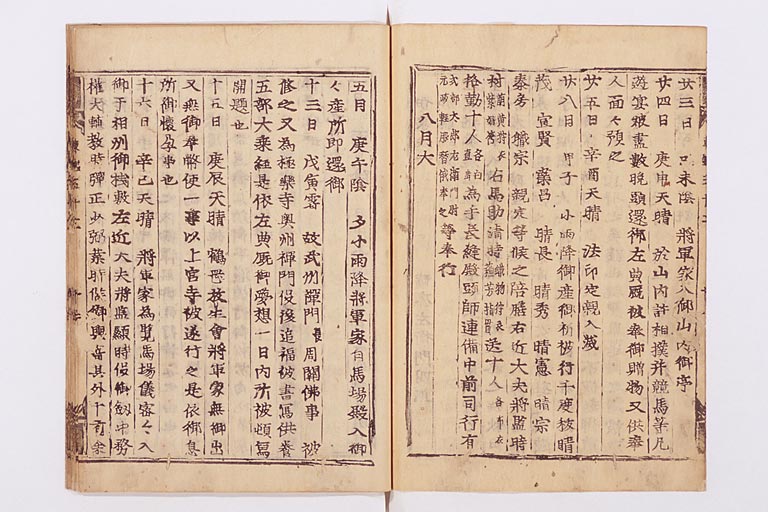 廿三日 己未陰 將軍家入御山内御亭
廿四日 庚申天晴 於山内計相撲并競馬等凡
遊宴被盡數晩頭還御左典厩被奉御贈物又供奉
人面々預之
廿五日 辛酉天晴 法印定親入滅
廿八日 甲子 小雨降御産御祈被行千度祓晴
茂 宣賢 爲昌 晴長 晴秀 晴憲 晴宗
泰房 職宗 親定等候之陪膳右近大夫將監時
右馬助
拾勤十人 爲手長縫殿頭師連備中前司行有
等奉行
八月大
五日 庚午陰 夕小雨降將軍家自馬場殿入御
々産所即還御
十三日 戊寅霽 故武州禪門 周關佛事 被
修之又爲極樂寺奥州禪門沒後追福被書寫供養
五部大乘經是依左典厩御夢想一日内所被頓寫
開題也
十五日 庚辰天晴 鶴岡放生會將軍家無御出
又無御奉幣使一事以上官寺被遂行之是依御息
所御懷孕事也
十六日 辛巳天晴 將軍家爲覽馬場儀密々入
御于相州御棧敷左近大夫將監顯時役御釼中務
權大輔教時彈正少弼業時候御輿 其外十有余